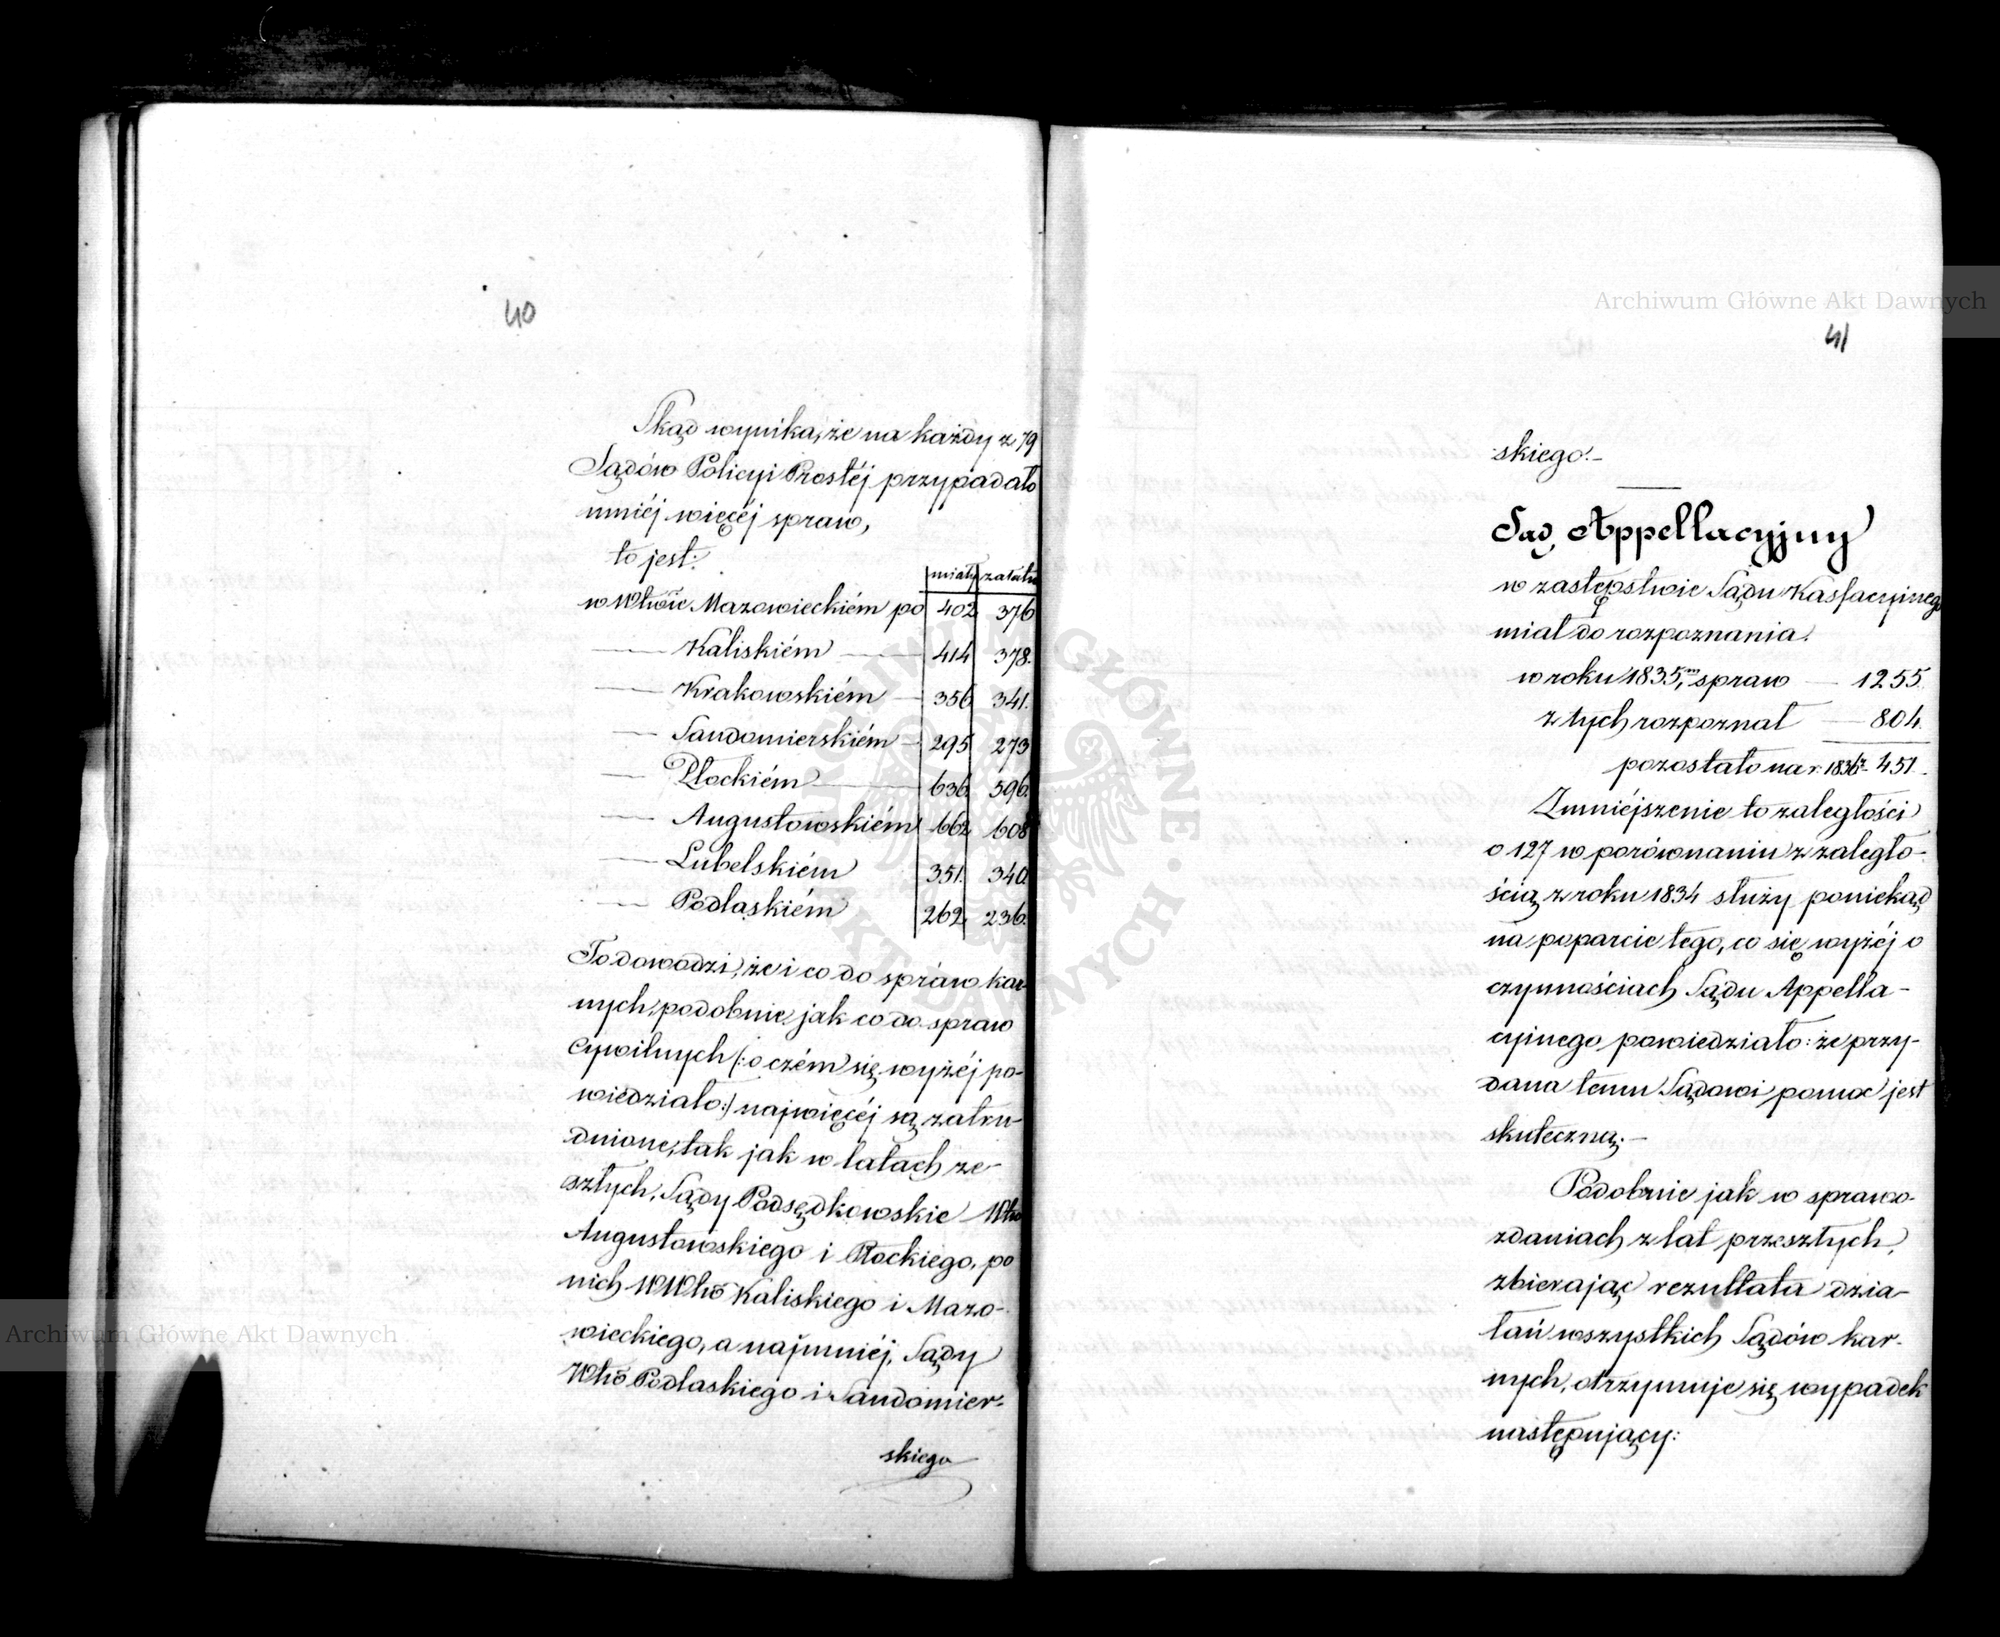 40
Skąd wynika, że na każdy z 79
Sądów Policyi Prostéj przypadało
mniéj więcéj spraw,
to jest:
miały załatw
w Wtwie Mazowieckiém po 402 376
Kaliskiém 414 378.
Krakowskiém 356 341.
Sandomierskiém 295 273
Płockiém 636. 596.
Augustowskiém 662 608
Lubelskiém 351. 340.
Podlaskiém 262. 236.
To dowodzi, że i co do spraw kar
nych, podobnie jak co do spraw
Cywilnych (: o czém się wyżéj po-
wiedziało :) najwięcéj są zatru-
dnione, tak jak w latach ze-
szłych, Sądy Podsędkowskie Wtwa
Augustowskiego i Płockiego, po
nich WWtw Kaliskiego i Mazo-
wieckiego, a najmniéj, Sądy
Wtw Podlaskiego i Sandomier-
skiego
41
skiego.-
Sąd Appellacyjny
w zastępstwie Sądu Kassacyinego
miał do rozpoznania.
w roku 1835,ym spraw — 1255.
z tych rozpoznał — 804.
pozostało na r. 1836ty 451.
Zmniéjszenie to zaległości
o 127 w porównaniu z zaległo-
ścią z roku 1834 służy poniekąd
na poparcie tego, co się wyżéj o
czynnościach Sądu Appella-
cyinego powiedziało: że przy-
dana temu Sądowi pomoc jest
skuteczną.-
Podobnie jak w sprawo-
zdaniach z lat przeszłych,
zbierając rezultata dzia-
łań wszystkich Sądów kar-
nych, otrzymuje się wypadek
następujący:
Archiwum Główne Akt Dawnych
Archiwum Główne Akt Dawnych
ARCHIWUM GŁÓWNE AKT DAWNYCH